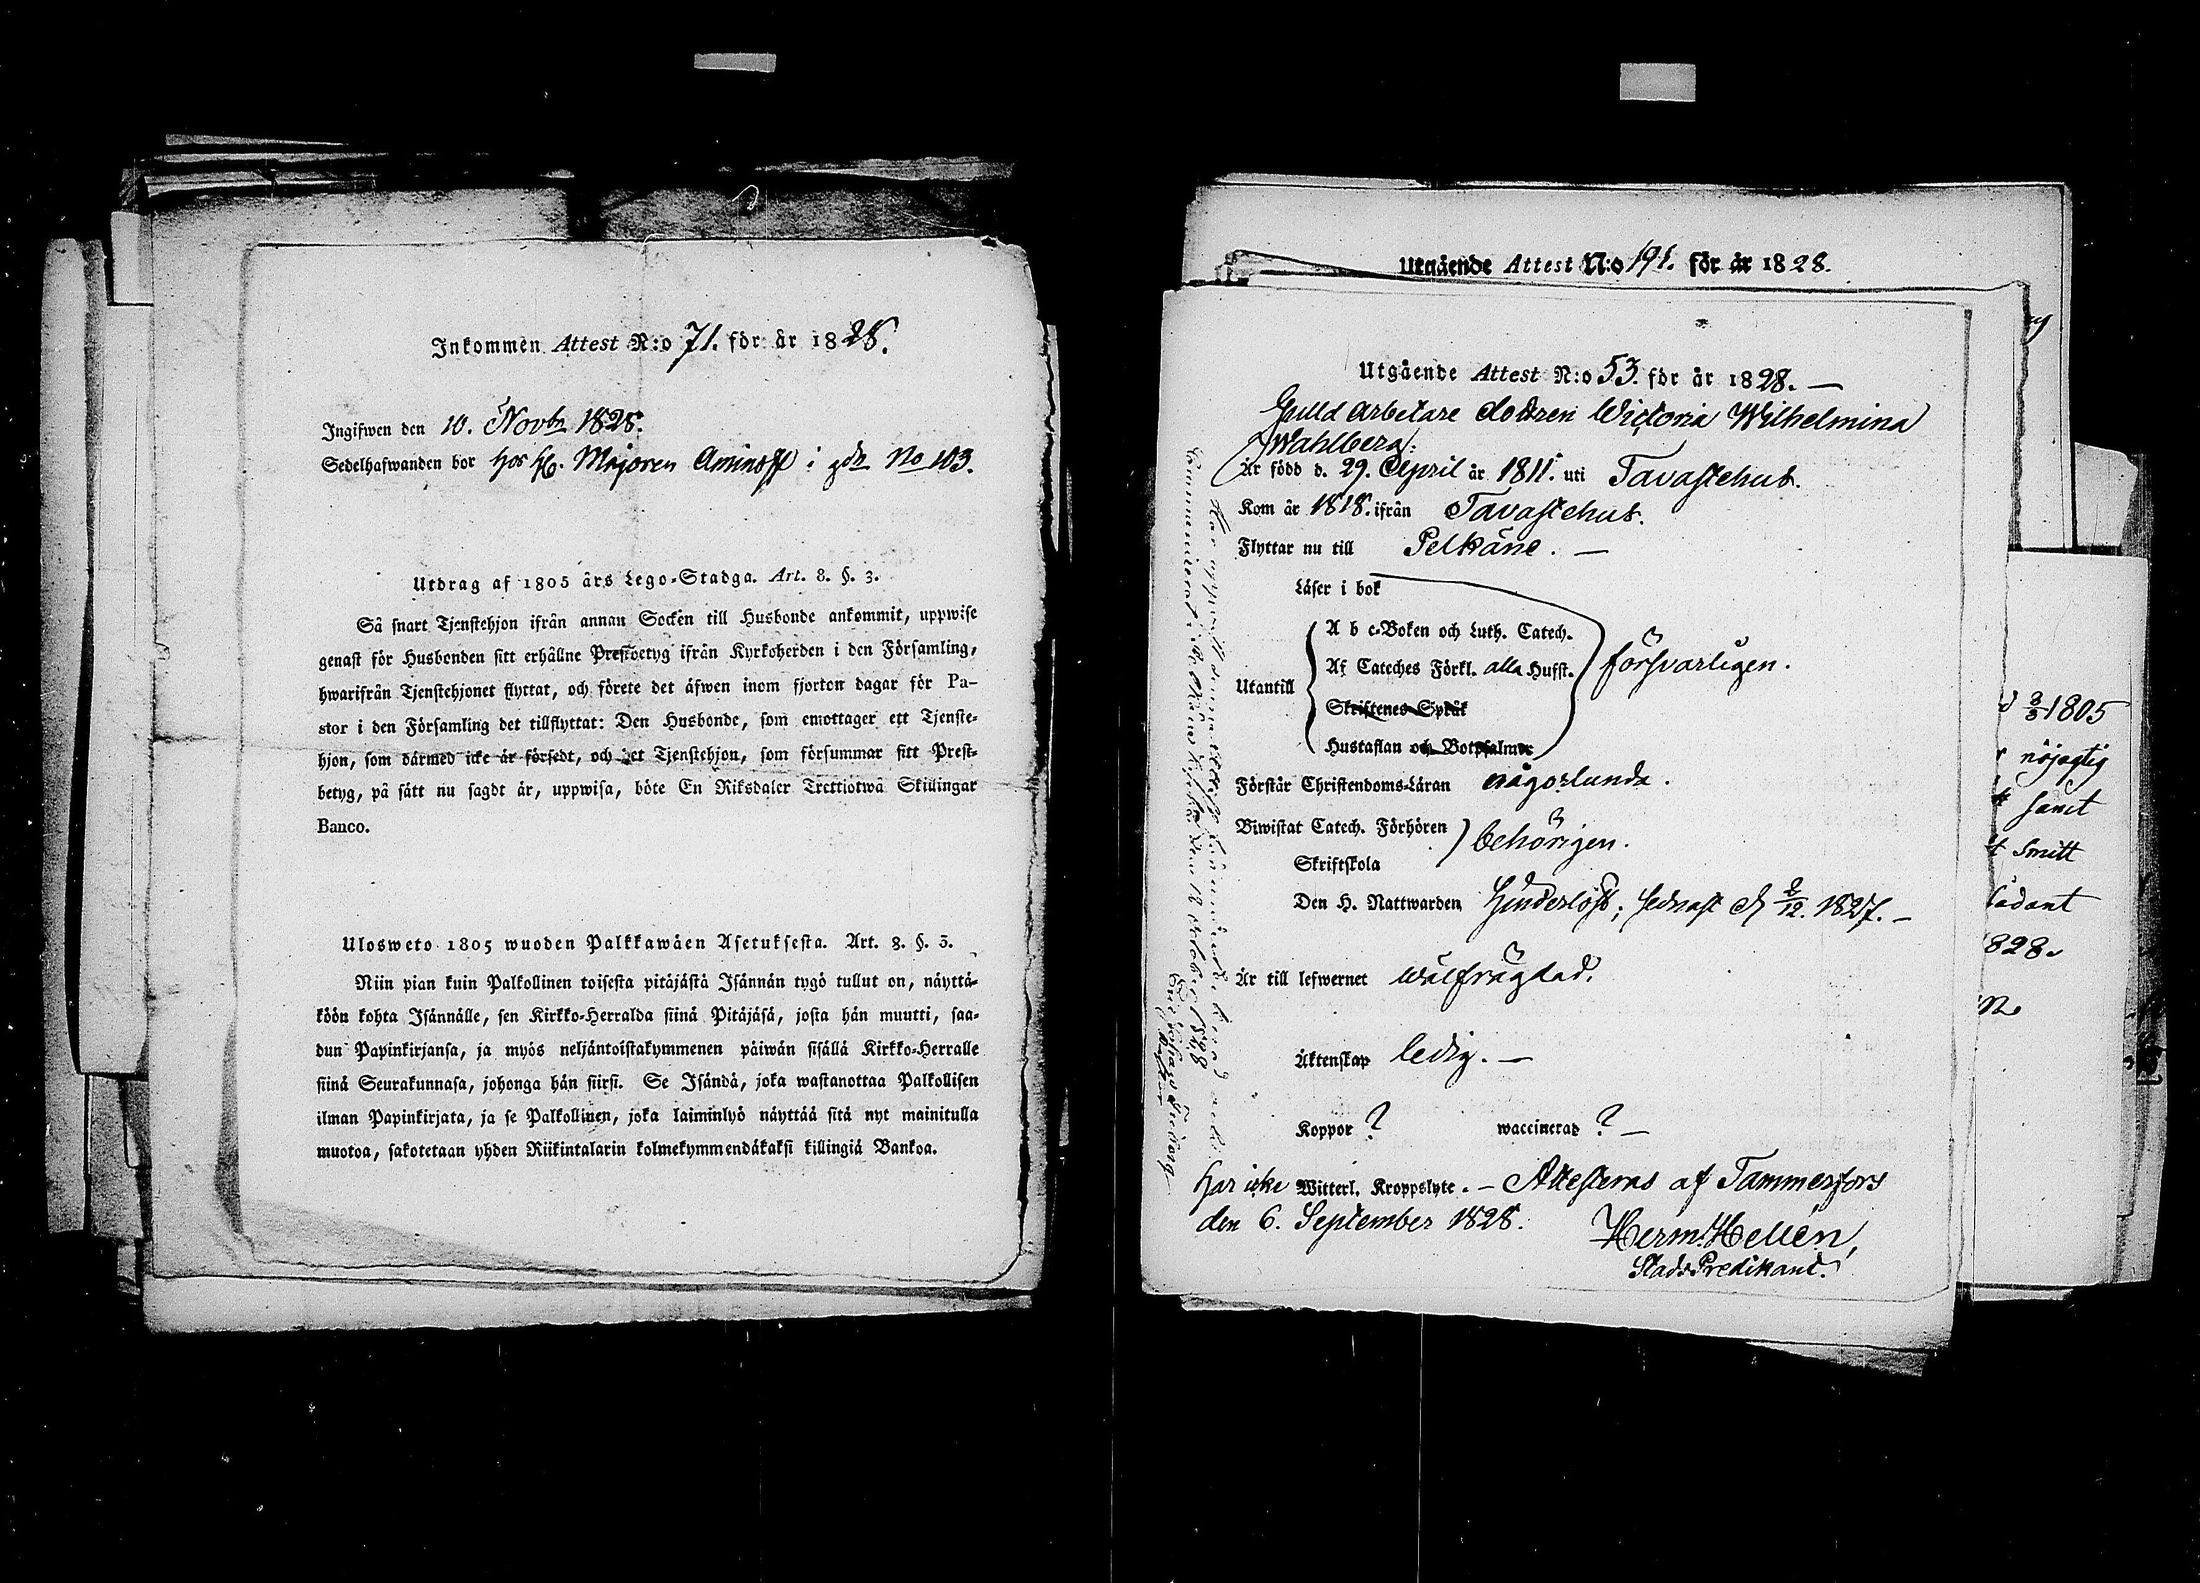 Inkommen Attest N:o 71. för år 1828.
Ingifwen den 10. Novbr 1828.
Sedelhafwanden bor hos H. Majoren Aminoff i gdn No 103.
Utdrag af 1805 års Lego-Stadga. Art. 8. §. 3.
Så snart Tjenstehjon ifrån annan Socken till Husbonde ankommit, uppwise
genast för Husbonden sitt erhållne Prestbetyg ifrån Kyrkoherden i den Församling,
hwarifrån Tjenstehjonet flyttat, och förete det äfwen inom fjorton dagar för Pa-
stor i den Församling det tillflyttat: Den Husbonde, som emottager ett Tjenste-
hjon, som därmed icke är försedt, och det Tjenstehjon, som försummar sitt Prest-
betyg, på sätt nu sagdt är, uppwisa, böte En Riksdaler Trettiotwå Skillingar
Banco.
Ulosweto 1805 wuoden Palkkawäen Asetuksesta. Art. 8. §. 3.
Niin pian kuin Palkollinen toisesta pitäjästä Isännän tygö tullut on, näyttä-
köön kohta Isännälle, sen Kirkko-Herralda siinä Pitäjäsä, josta hän muutti, saa-
dun Papinkirjansa, ja myös neljäntoistakymmenen päiwän sisällä Kirkko-Herralle
siinä Seurakunnasa, johonga hän siirsi. Se Isändä, joka wastanottaa Palkollisen
ilman Papinkirjata, ja se Palkollinen, joka laiminlyö näyttää sitä nyt mainitulla
muotoa, sakotetaan yhden Riikintalarin kolmekymmendäkaksi killingiä Bankoa.
Utgående Attest N:o 191. för år 1828.
Utgående Attest N:o 53. för år 1828. —
Guld arbetare dottren Victoria Wilhelmina
Wahlberg.
Är född d. 29. April år 1811. uti Tavastehus.
Kom år 1818. ifrån Tavastehus.
Flyttar nu till Pelkäne. —
Läser i bok
A b c-Boken och Luth. Catech.
Af Cateches Förkl. alla Hufst. försvarligen.
Utantill
Skriftenes Språk
Hustaflan och Botpsalmer
Förstår Christendoms-Läran någorlunda.
Biwistat Catech. Förhören behörigen.
Skriftskola
Den H. Nattwarden Hinderlöst; sednast d 2/12. 1827. —
Är till lefwernet wälfrägdad.
Äktenskap ledig. —
Koppor ? waccinerad ? —
Har icke Witterl. Kroppslyte. — Attesteras af Tammerfors
den 6. September 1828.
Herm. Hellén,
Stads Predikant.
1805
nöjagtig
samt
smitt
sådant
1828.